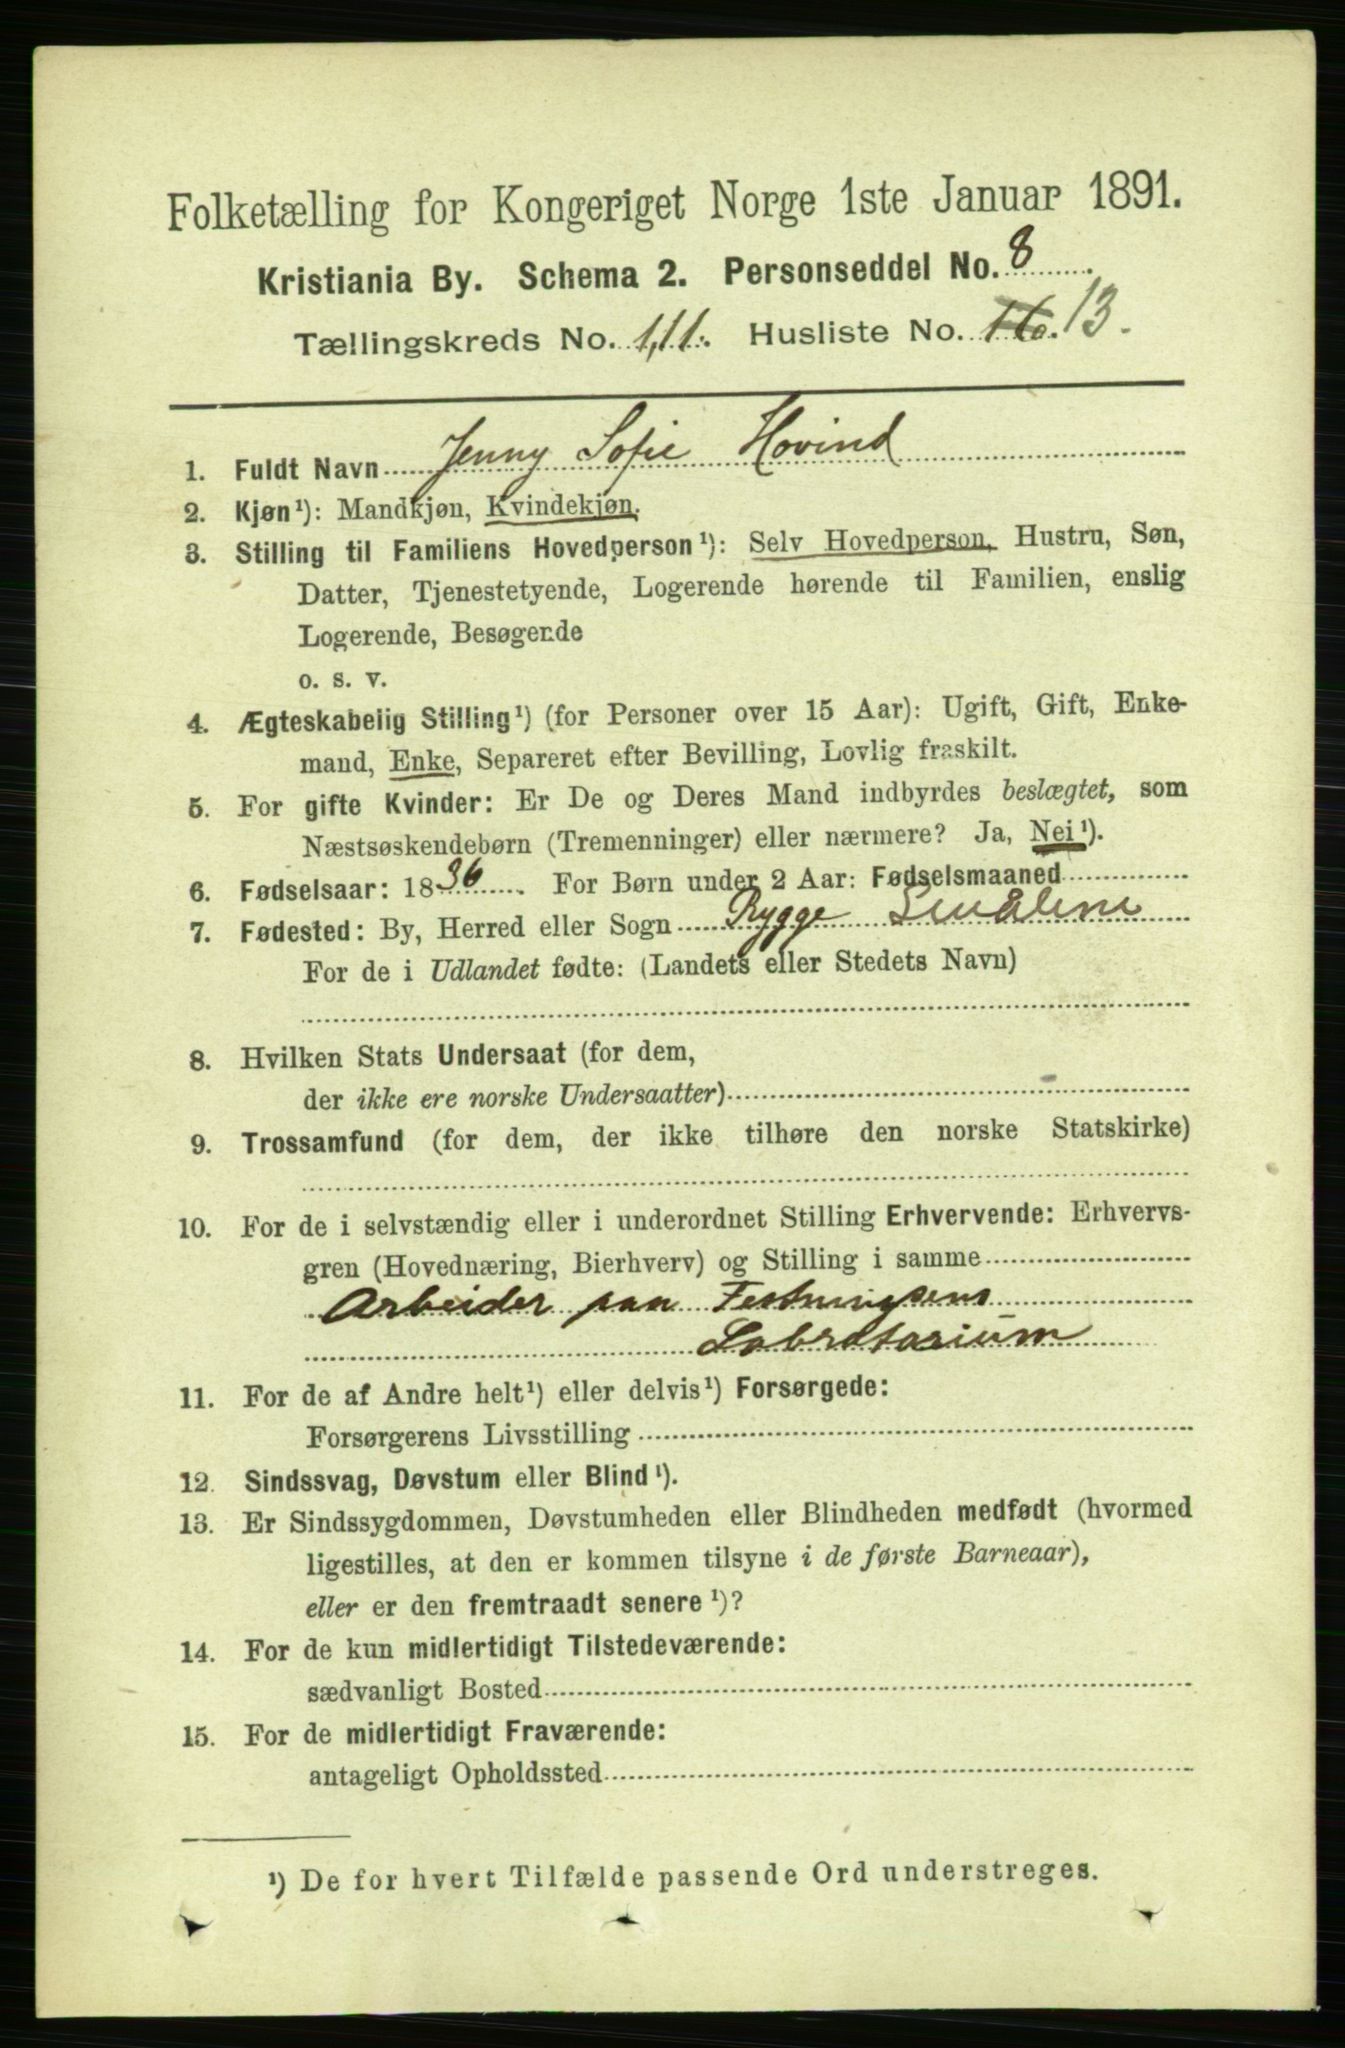 Folketælling for Kongeriget Norge 1ste Januar 1891.
Kristiania By. Schema 2. Personseddel No. 8
Tællingskreds No. 111. Husliste No. 16. 13.
1. Fuldt Navn Jenny Sofie Hovind
2. Kjøn¹): Mandkjøn, Kvindekjøn.
3. Stilling til Familiens Hovedperson¹): Selv Hovedperson, Hustru, Søn,
Datter, Tjenestetyende, Logerende hørende til Familien, enslig
Logerende, Besøgende
o. s. v.
4. Ægteskabelig Stilling¹) (for Personer over 15 Aar): Ugift, Gift, Enke-
mand, Enke, Separeret efter Bevilling, Lovlig fraskilt.
5. For gifte Kvinder: Er De og Deres Mand indbyrdes beslægtet, som
Næstsøskendebørn (Tremenninger) eller nærmere? Ja, Nei¹).
6. Fødselsaar: 1836. For Børn under 2 Aar: Fødselsmaaned
7. Fødested: By, Herred eller Sogn Rygge Smålene
For de i Udlandet fødte: (Landets eller Stedets Navn)
8. Hvilken Stats Undersaat (for dem,
der ikke ere norske Undersaatter)
9. Trossamfund (for dem, der ikke tilhøre den norske Statskirke)
10. For de i selvstændig eller i underordnet Stilling Erhvervende: Erhvervs-
gren (Hovednæring, Bierhverv) og Stilling i samme
Arbeider paa Festningsens
Labratorium
11. For de af Andre helt¹) eller delvis¹) Forsørgede:
Forsørgerens Livsstilling
12. Sindssvag, Døvstum eller Blind¹).
13. Er Sindssygdommen, Døvstumheden eller Blindheden medfødt (hvormed
ligestilles, at den er kommen tilsyne i de første Barneaar),
eller er den fremtraadt senere¹)?
14. For de kun midlertidigt Tilstedeværende:
sædvanligt Bosted
15. For de midlertidigt Fraværende:
antageligt Opholdssted
¹) De for hvert Tilfælde passende Ord understreges.